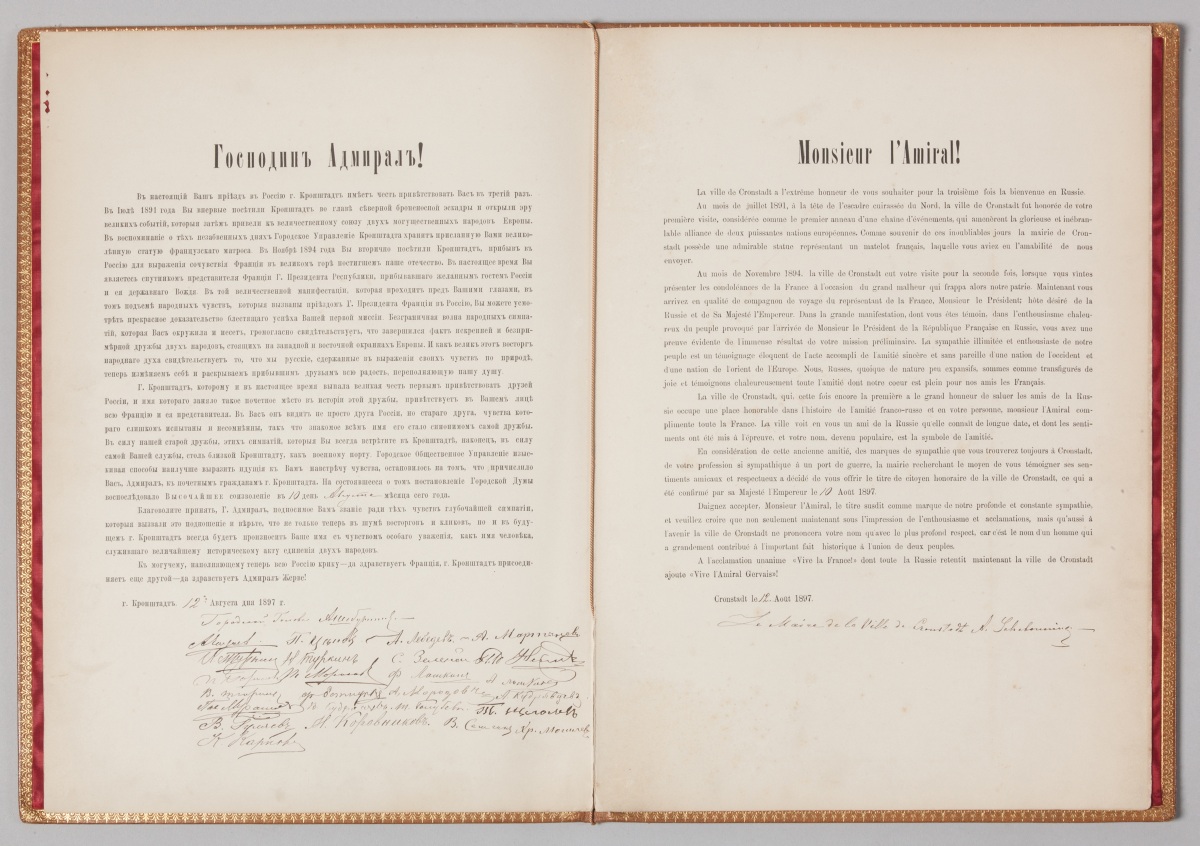 Господинъ Адмиралъ!
Въ настоящій Вашъ пріѣздъ въ Россію г. Кронштадтъ имѣетъ честь привѣтствовать Васъ въ третій разъ.
Въ Іюлѣ 1891 года Вы впервые посѣтили Кронштадтъ во главѣ сѣверной броненосной эскадры и открыли эру
великихъ событій, которыя затѣмъ привели къ величественному союзу двухъ могущественныхъ народовъ Европы.
Въ воспоминаніе о тѣхъ незабвенныхъ дняхъ Городское Управленіе Кронштадта хранитъ присланную Вами велико-
лѣпную статую французскаго матроса. Въ Ноябрѣ 1894 года Вы вторично посѣтили Кронштадтъ, прибывъ въ
Россію для выраженія сочувствія Франціи въ великомъ горѣ постигшемъ наше отечество. Въ настоящее время Вы
являетесь спутникомъ представителя Франціи Г. Президента Республики, прибывшаго желаннымъ гостемъ Россіи
и ея державнаго Вождя. Въ той величественной манифестаціи, которая проходитъ предъ Вашими глазами, въ
томъ подъемѣ народныхъ чувствъ, которыя вызваны пріѣздомъ Г. Президента Франціи въ Россію, Вы можете усмо-
трѣть прекрасное доказательство блестящаго успѣха Вашей первой миссіи. Безграничная волна народныхъ симпа-
тій, которая Васъ окружила и несетъ, громогласно свидѣтельствуетъ, что завершился фактъ искренней и безпри-
мѣрной дружбы двухъ народовъ, стоящихъ на западной и восточной окраинахъ Европы. И какъ великъ этотъ восторгъ
народнаго духа свидѣтельствуетъ то, что мы русскіе, сдержанные въ выраженіи своихъ чувствъ по природѣ,
теперь измѣняемъ себѣ и раскрываемъ прибывшимъ друзьямъ всю радость, переполняющую нашу душу.
Г. Кронштадтъ, которому и въ настоящее время выпала великая честь первымъ привѣтствовать друзей
Россіи, и имя котораго заняло такое почетное мѣсто въ исторіи этой дружбы, привѣтствуетъ въ Вашемъ лицѣ
всю Францію и ея представителя. Въ Васъ онъ видитъ не просто друга Россіи, но стараго друга, чувства кото-
раго слишкомъ испытаны и несомнѣнны, такъ что знакомое всѣмъ имя его стало синонимомъ самой дружбы.
Въ силу нашей старой дружбы, этихъ симпатій, которыя Вы всегда встрѣтите въ Кронштадтѣ, наконецъ, въ силу
самой Вашей службы, столь близкой Кронштадту, какъ военному порту. Городское Общественное Управленіе изыс-
кивая способы наилучше выразить идущія къ Вамъ навстрѣчу чувства, остановилось на томъ, что причислило
Васъ, Адмиралъ, къ почетнымъ гражданамъ г. Кронштадта. На состоявшееся о томъ постановленіе Городской Думы
воспослѣдовало Высочайшее соизволеніе въ 10 день Августа мѣсяца сего года.
Благоволите принять, Г. Адмиралъ, подносимое Вамъ званіе ради тѣхъ чувствъ глубочайшей симпатіи,
которыя вызвали это подношеніе и вѣрьте, что не только теперь въ шумѣ восторговъ и кликовъ, но и въ буду-
щемъ г. Кронштадтъ всегда будетъ произносить Ваше имя съ чувствомъ особаго уваженія, какъ имя человѣка,
служившаго величайшему историческому акту единенія двухъ народовъ.
Къ могучему, наполняющему теперь всю Россію крику—да здравствуетъ Франція, г. Кронштадтъ присоеди-
няетъ еще другой—да здравствуетъ Адмиралъ Жерве!
г. Кронштадтъ. 12 Августа дня 1897 г.
Городской Голова
Н. Цыловъ А. Лебедевъ
Н. Туркинъ
А. Коровниковъ. В.
Monsieur l'Amiral!
La ville de Cronstadt a l'extrême honneur de vous souhaiter pour la troisième fois la bienvenue en Russie.
Au mois de juillet 1891, à la tête de l'escadre cuirassée du Nord, la ville de Cronstadt fut honorée de votre
première visite, considérée comme le premier anneau d'une chaîne d'événements, qui amenèrent la glorieuse et inébran-
lable alliance de deux puissantes nations européennes. Comme souvenir de ces inoubliables jours la mairie de Cron-
stadt possède une admirable statue représentant un matelot français, laquelle vous aviez eu l'amabilité de nous
envoyer.
Au mois de Novembre 1894, la ville de Cronstadt eut votre visite pour la seconde fois, lorsque vous vintes
présenter les condoléances de la France à l'occasion du grand malheur qui frappa alors notre patrie. Maintenant vous
arrivez en qualité de compagnon de voyage du représentant de la France, Monsieur le Président; hôte désiré de la
Russie et de Sa Majesté l'Empereur. Dans la grande manifestation, dont vous êtes témoin, dans l'enthousiasme chaleu-
reux du peuple provoqué par l'arrivée de Monsieur le Président de la République Française en Russie, vous avez une
preuve évidente de l'immense résultat de votre mission préliminaire. La sympathie illimitée et enthousiaste de notre
peuple est un témoignage éloquent de l'acte accompli de l'amitié sincère et sans pareille d'une nation de l'occident et
d'une nation de l'orient de l'Europe. Nous, Russes, quoique de nature peu expansifs, sommes comme transfigurés de
joie et témoignons chaleureusement toute l'amitié dont notre coeur est plein pour nos amis les Français.
La ville de Cronstadt, qui, cette fois encore la première a le grand honneur de saluer les amis de la Rus-
sie occupe une place honorable dans l'histoire de l'amitié franco-russe et en votre personne, monsieur l'Amiral com-
plimente toute la France. La ville voit en vous un ami de la Russie qu'elle connaît de longue date, et dont les senti-
ments ont été mis à l'épreuve, et votre nom, devenu populaire, est la symbole de l'amitié.
En considération de cette ancienne amitié, des marques de sympathie que vous trouverez toujours à Cronstadt,
de votre profession si sympathique à un port de guerre, la mairie recherchant le moyen de vous témoigner ses sen-
timents amicaux et respectueux a décidé de vous offrir le titre de citoyen honoraire de la ville de Cronstadt, ce qui a
été confirmé par sa Majesté l'Empereur le 10 Août 1897.
Daignez accepter, Monsieur l'Amiral, le titre susdit comme marque de notre profonde et constante sympathie,
et veuillez croire que non seulement maintenant sous l'impression de l'enthousiasme et acclamations, mais qu'aussi à
l'avenir la ville de Cronstadt ne prononcera votre nom qu'avec le plus profond respect, car c'est le nom d'un homme qui
a grandement contribué à l'important fait historique à l'union de deux peuples.
A l'acclamation unanime «Vive la France!» dont toute la Russie retentit maintenant la ville de Cronstadt
ajoute «Vive l'Amiral Gervais!»
Cronstadt le 12 Août 1897.
Le Maire de la Ville de Cronstadt A.